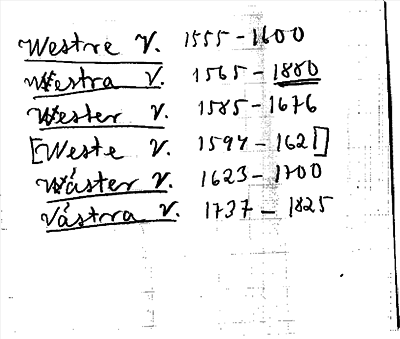 Westre V. 1555-1600
Westra V. 1565-1880
Wester V. 1585-1676
[Weste V. 1594-1621]
Wáster V. 1623-1700
Vástra V. 1737-1825